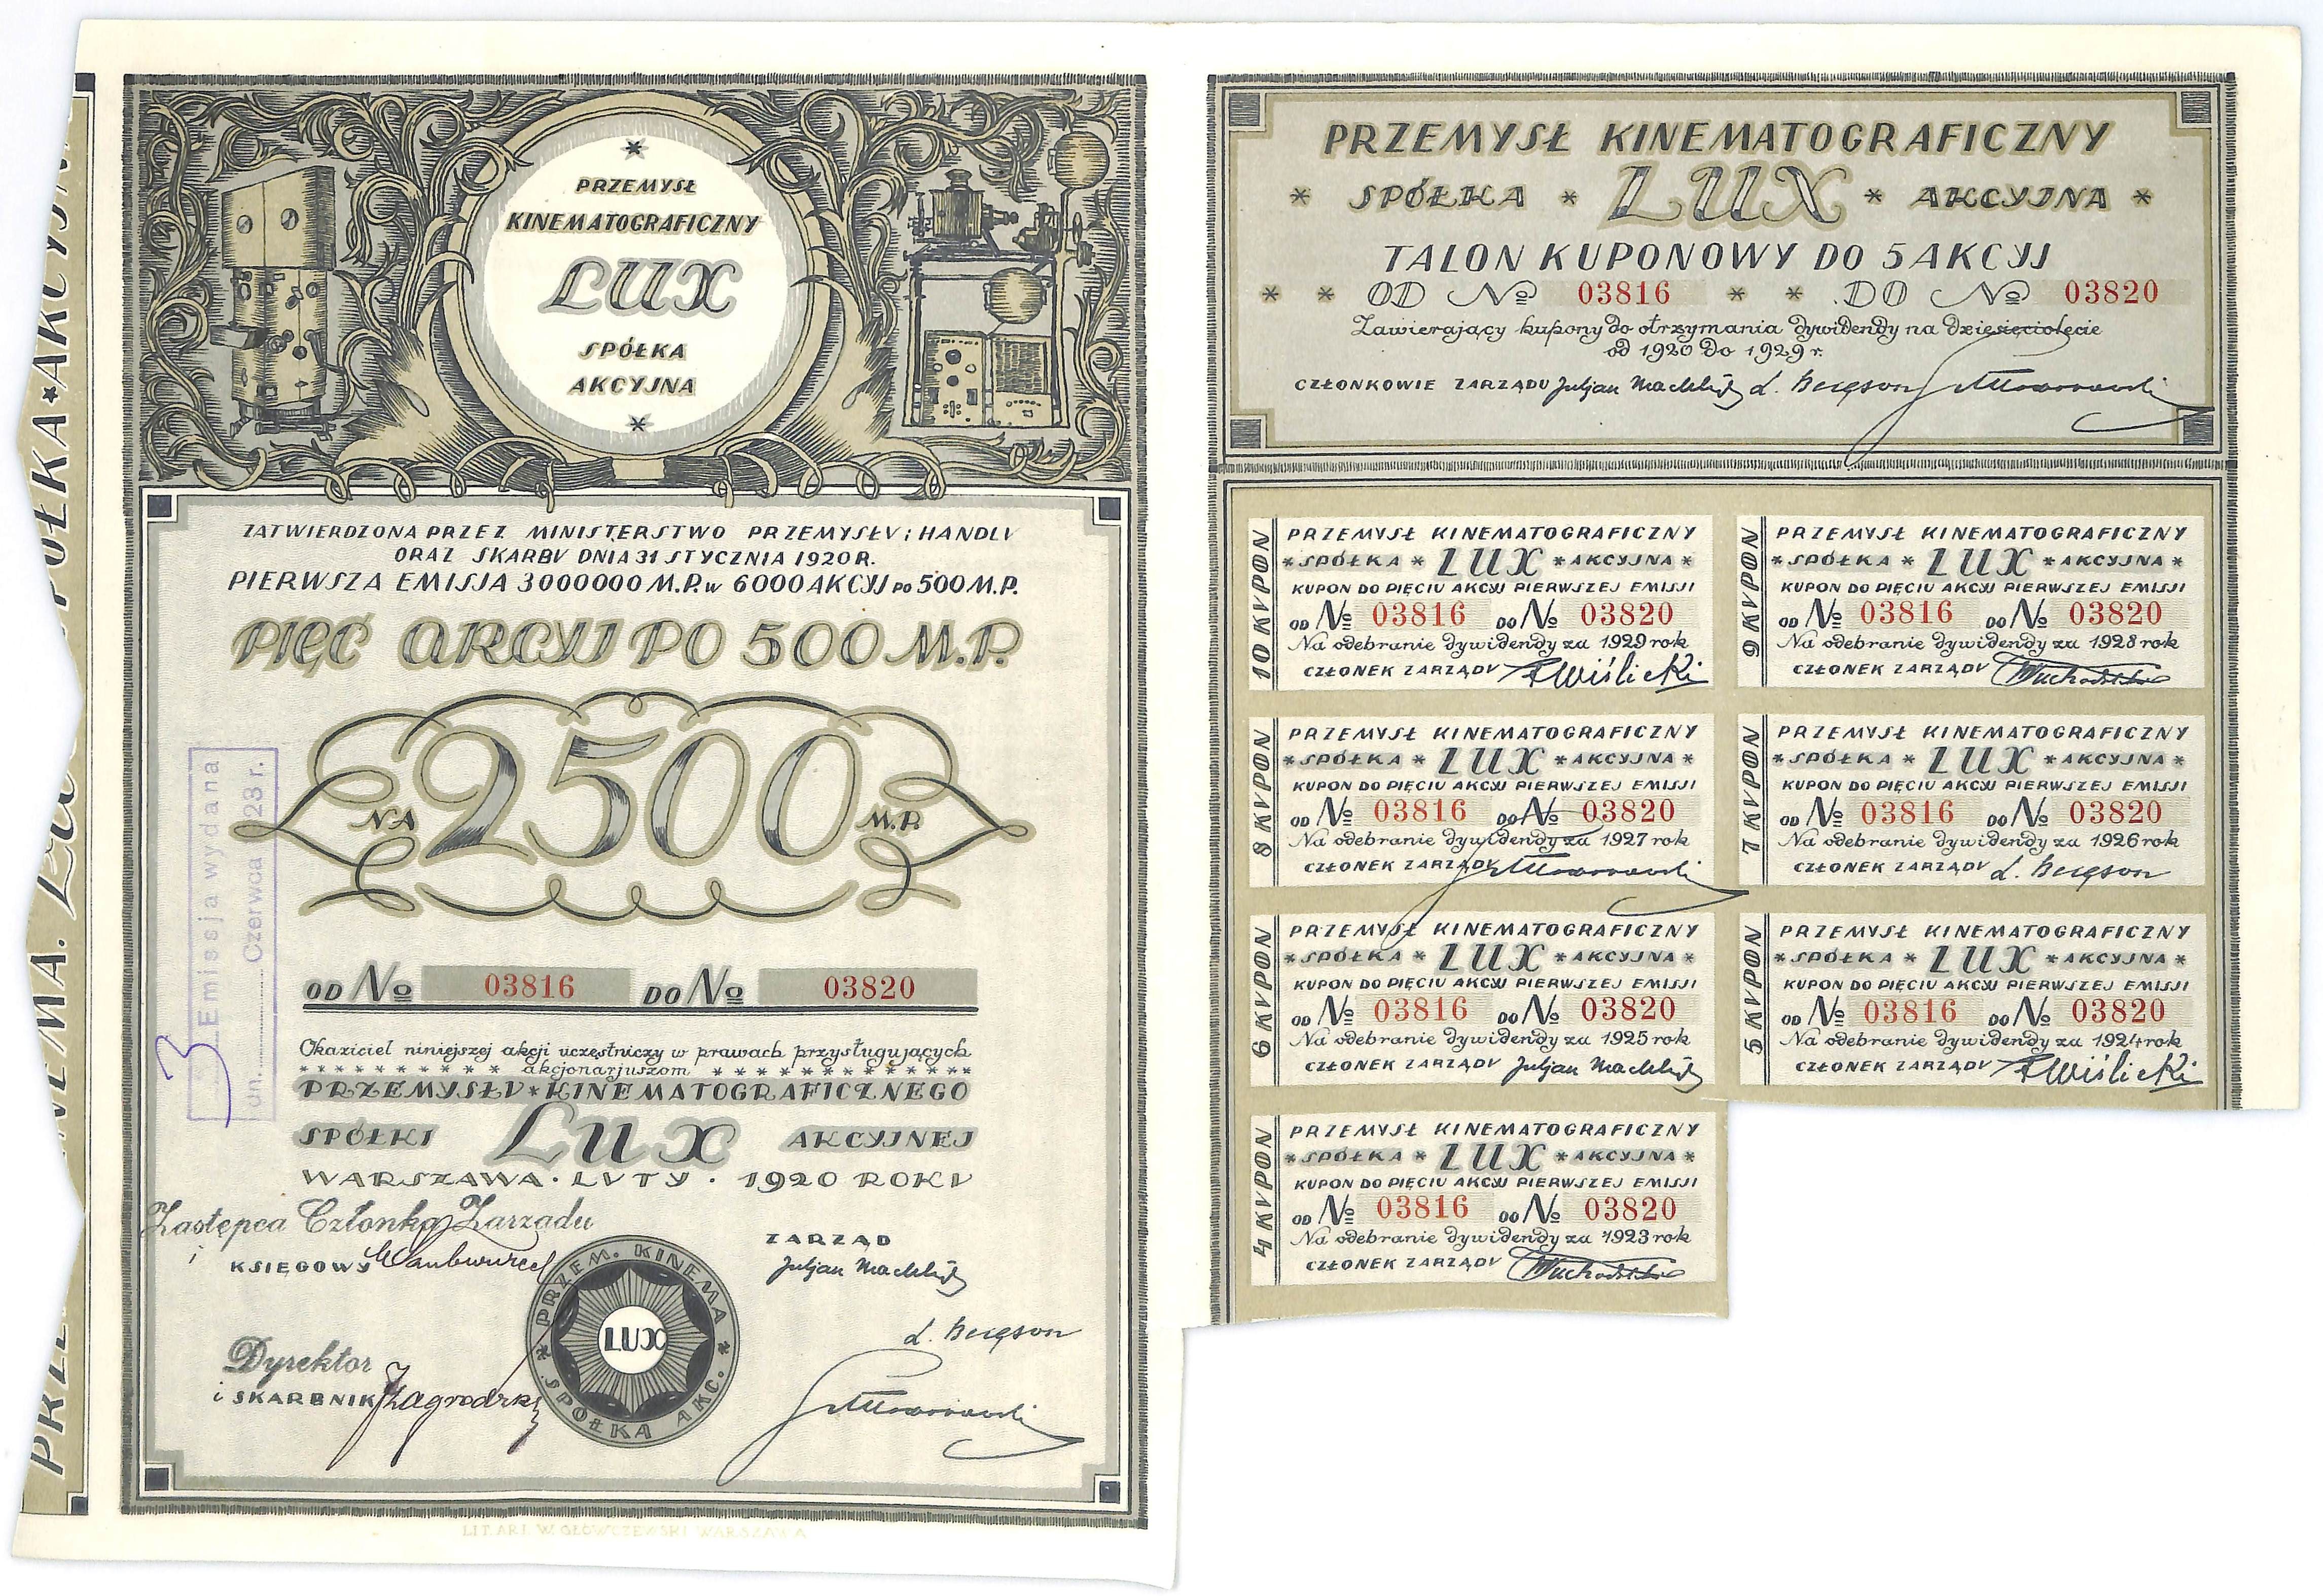 PRZEMYSŁ
KINEMATOGRAFICZNY
LUX
SPÓŁKA
AKCYJNA
ZATWIERDZONA PRZEZ MINISTERSTWO PRZEMYSŁV i HANDLV
ORAZ SKARBV DNIA 31 STYCZNIA 1920 R.
PIERWSZA EMISJA 3000000 M.P. w 6000 AKCYJ po 500 M.P.
PIĘĆ AKCYJ PO 500 M.P.
NA 2500 M.P.
OD № 03816 DO № 03820
Okaziciel niniejszej akcji uczęstniczy w prawach przysługujących
* * * * * * * * * * akcjonarjuszom * * * * * * * * * * * *
PRZEMYSŁV * KINEMATOGRAFICZNEGO
SPÓŁKI LUX AKCYJNEJ
WARSZAWA · LVTY · 1920 ROKV
Zastępca Członka Zarzadu
i
KSIĘGOWY
ZARZĄD
L. Bergson
Dyrektor
i SKARBNIK
PRZEM. KINEMA * SPÓŁKA AKC. *
LUX
LIT. ART. W. GŁÓWCZEWSKI WARSZAWA
3 Emissja wydana
dn. Czerwca 1923 r.
SPÓŁKA * AKCYJN
PRZEMYSŁ KINEMATOGRAFICZNY
* SPÓŁKA * LUX * AKCYJNA *
TALON KUPONOWY DO 5 AKCYJ
* * OD № 03816 * * DO № 03820
Zawierający kupony do otrzymania dywidendy na dziesięciolecie
od 1920 do 1929 r.
CZŁONKOWIE ZARZĄDU L. Bergson
10 KVPON
PRZEMYSŁ KINEMATOGRAFICZNY
* SPÓŁKA * LUX * AKCYJNA *
KUPON DO PIĘCIU AKCYJ PIERWSZEJ EMISJI
OD № 03816 DO № 03820
Na odebranie dywidendy za 1929 rok
CZŁONEK ZARZĄDV Wiślicki
9 KVPON
PRZEMYSŁ KINEMATOGRAFICZNY
* SPÓŁKA * LUX * AKCYJNA *
KUPON DO PIĘCIU AKCYJ PIERWSZEJ EMISJI
OD № 03816 DO № 03820
Na odebranie dywidendy za 1928 rok
CZŁONEK ZARZĄDV
8 KVPON
PRZEMYSŁ KINEMATOGRAFICZNY
* SPÓŁKA * LUX * AKCYJNA *
KUPON DO PIĘCIU AKCYJ PIERWSZEJ EMISJI
OD № 03816 DO № 03820
Na odebranie dywidendy za 1927 rok
CZŁONEK ZARZĄDV
7 KVPON
PRZEMYSŁ KINEMATOGRAFICZNY
* SPÓŁKA * LUX * AKCYJNA *
KUPON DO PIĘCIU AKCYJ PIERWSZEJ EMISJI
OD № 03816 DO № 03820
Na odebranie dywidendy za 1926 rok
CZŁONEK ZARZĄDV L. Bergson
6 KVPON
PRZEMYSŁ KINEMATOGRAFICZNY
* SPÓŁKA * LUX * AKCYJNA *
KUPON DO PIĘCIU AKCYJ PIERWSZEJ EMISJI
OD № 03816 DO № 03820
Na odebranie dywidendy za 1925 rok
CZŁONEK ZARZĄDV Juljan
5 KVPON
PRZEMYSŁ KINEMATOGRAFICZNY
* SPÓŁKA * LUX * AKCYJNA *
KUPON DO PIĘCIU AKCYJ PIERWSZEJ EMISJI
OD № 03816 DO № 03820
Na odebranie dywidendy za 1924 rok
CZŁONEK ZARZĄDV Wiślicki
4 KVPON
PRZEMYSŁ KINEMATOGRAFICZNY
* SPÓŁKA * LUX * AKCYJNA *
KUPON DO PIĘCIU AKCYJ PIERWSZEJ EMISJI
OD № 03816 DO № 03820
Na odebranie dywidendy za 1923 rok
CZŁONEK ZARZĄDV